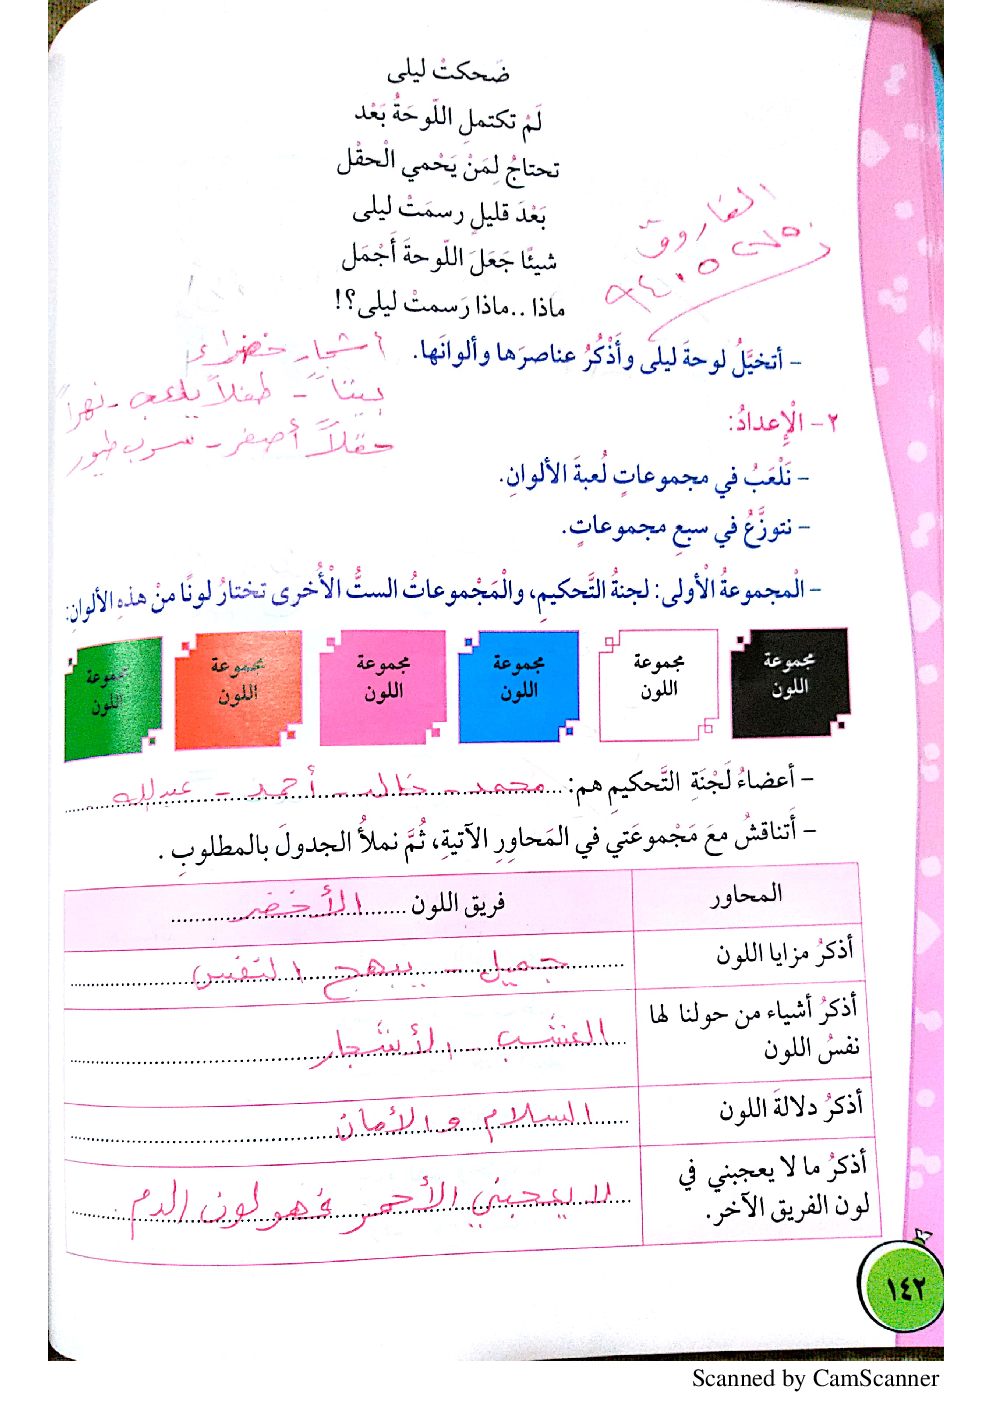 ضَحكتْ ليلى
لَمْ تكتملِ اللّوحَةُ بَعْد
تحتاجُ لِمَنْ يَحْمي الْحقْل
بَعْدَ قليلٍ رسمَتْ ليلى
شيئًا جَعَلَ اللّوحةَ أَجْمَل
ماذا ..ماذا رَسمتْ ليلى؟!
الفاروق
– أتخيَّلُ لوحةَ ليلى وأَذْكُرُ عناصرَها وألوانَها. أشجار خضراء
بيتاً - طفلاً يلعب - نهراً
حقلاً أصفر - سرب طيور
٢ – الْإعدادُ:
– نَلْعَبُ في مجموعاتٍ لُعبةَ الألوانِ.
– نتوزَّعُ في سبعِ مجموعاتٍ.
– الْمجموعةُ الْأولى: لجنةُ التَّحكيمِ، والْمَجْموعاتُ الستُّ الْأُخرى تختارُ لونًا منْ هذهِ الألوانِ:
مجموعة اللون
مجموعة اللون
مجموعة اللون
مجموعة اللون
مجموعة اللون
مجموعة اللون
– أعضاءُ لَجْنَةِ التَّحكيمِ هم: محمد - خالد - أحمد - عبدالله
– أَتناقشُ معَ مَجْموعَتي في المَحاورِ الآتيةِ، ثُمَّ نملأُ الجدولَ بالمطلوبِ .
المحاور فريق اللون الأخضر
أذكرُ مزايا اللون جميل - يبهج النفس
أذكرُ أشياء من حولنا لها نفسُ اللون العشب - الأشجار
أذكرُ دلالةَ اللون السلام والأمان
أذكرُ ما لا يعجبني في لون الفريق الآخر. لا يعجبني الأحمر فهو لون الدم
١٤٢
Scanned by CamScanner